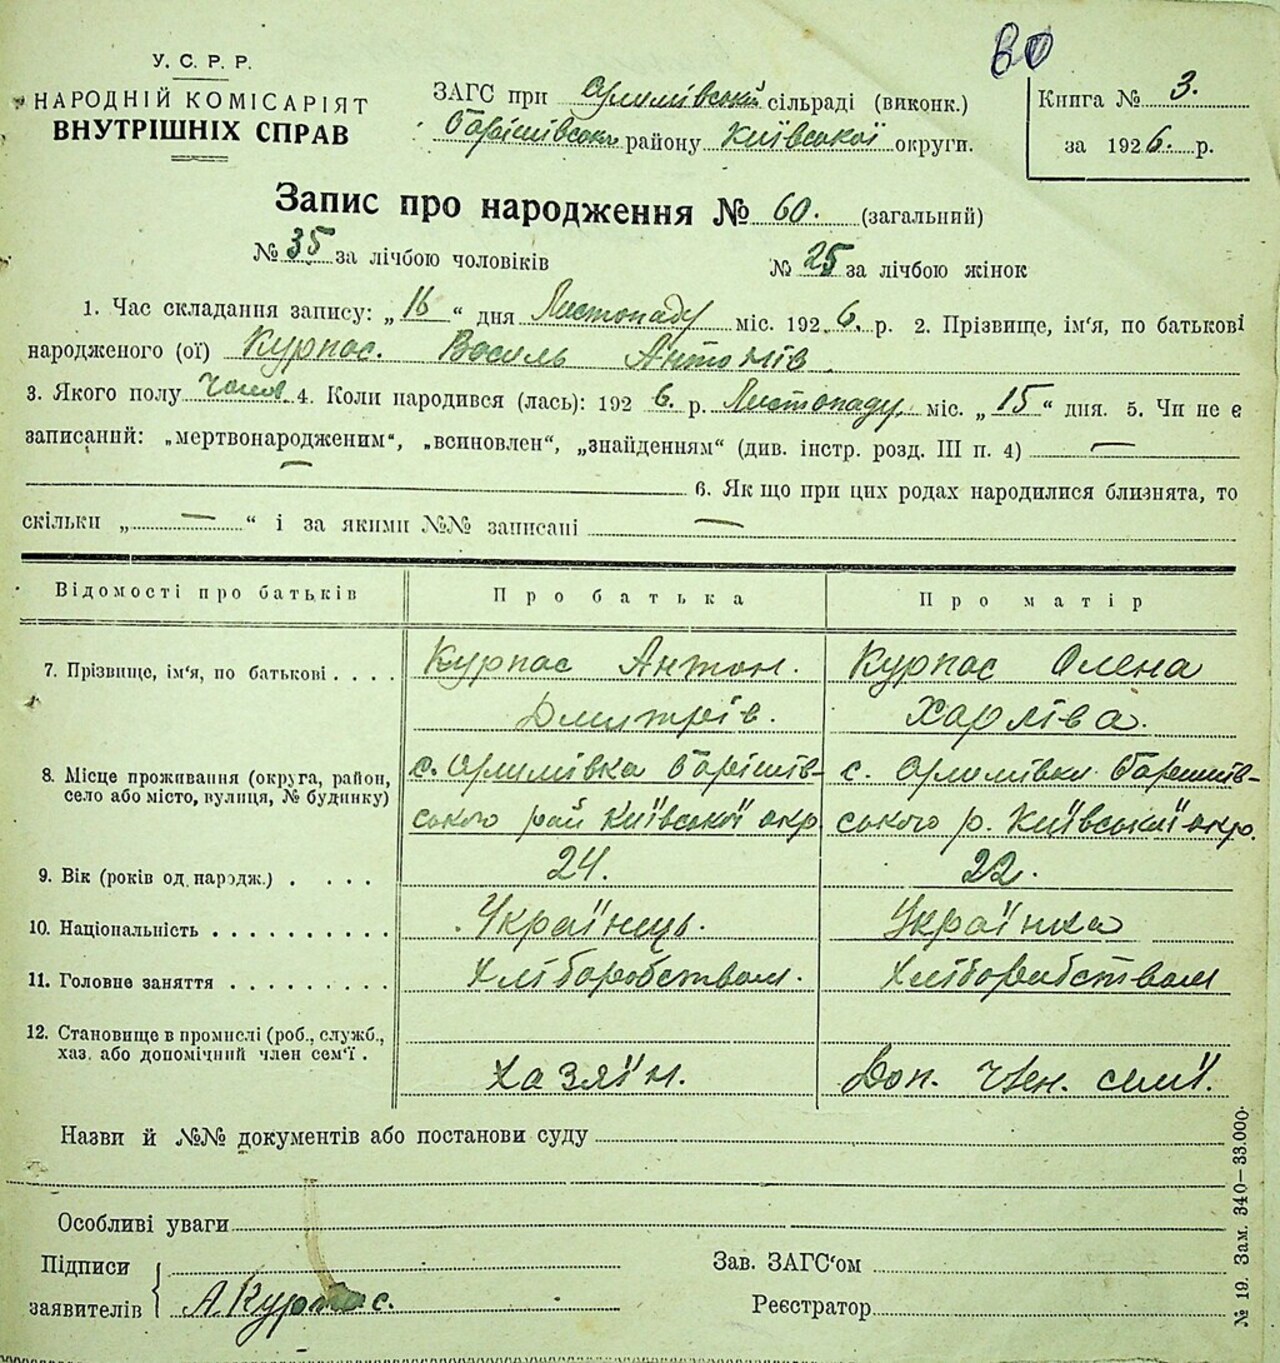 60
У. С. Р. Р.
НАРОДНІЙ КОМІСАРІЯТ
ВНУТРІШНІХ СПРАВ
ЗАГС при сільраді (виконк.)
району Київської округи.
Книга № 3.
за 1926. р.
Запис про народження № 60. (загальний)
№ 35 за лічбою чоловіків
№ 25 за лічбою жінок
1. Час складання запису: „16“ дня Листопаду міс. 1926. р. 2. Прізвище, ім‘я, по батькові
народженого (ої) Курпас. Василь Антонів.
3. Якого полу Чолов. 4. Коли народився (лась): 1926. р. Листопаду міс. „15“ дня. 5. Чи не є
записаний: „мертвонародженим“, „всиновлен“, „знайденням“ (див. інстр. розд. III п. 4) —
— 6. Як що при цих родах народилися близнята, то
скільки „ — “ і за якими №№ записані —
Відомості про батьків
Про батька
Про матір
7. Прізвище, ім‘я, по батькові . . . .
Курпас Антон.
Дмитрів.
Курпас Олена
Харліва.
8. Місце проживання (округа, район,
село або місто, вулиця, № будинку)
с.
ського рай Київської окр
с.
ського р. Київської окр.
9. Вік (років од народж.) . . . .
24.
22.
10. Національність . . . . . . . . . .
Українець.
Українка
11. Головне заняття . . . . . . . . .
Хліборобством.
Хліборобством
12. Становище в промислі (роб., служб.,
хаз. або допомічний член сем‘ї .
Хазяїн.
Доп. член. семї.
Назви й №№ документів або постанови суду
Особливі уваги
Підписи
заявителів
А Курпас.
Зав. ЗАГС‘ом
Реєстратор
№ 19. Зам. 340—33.000.